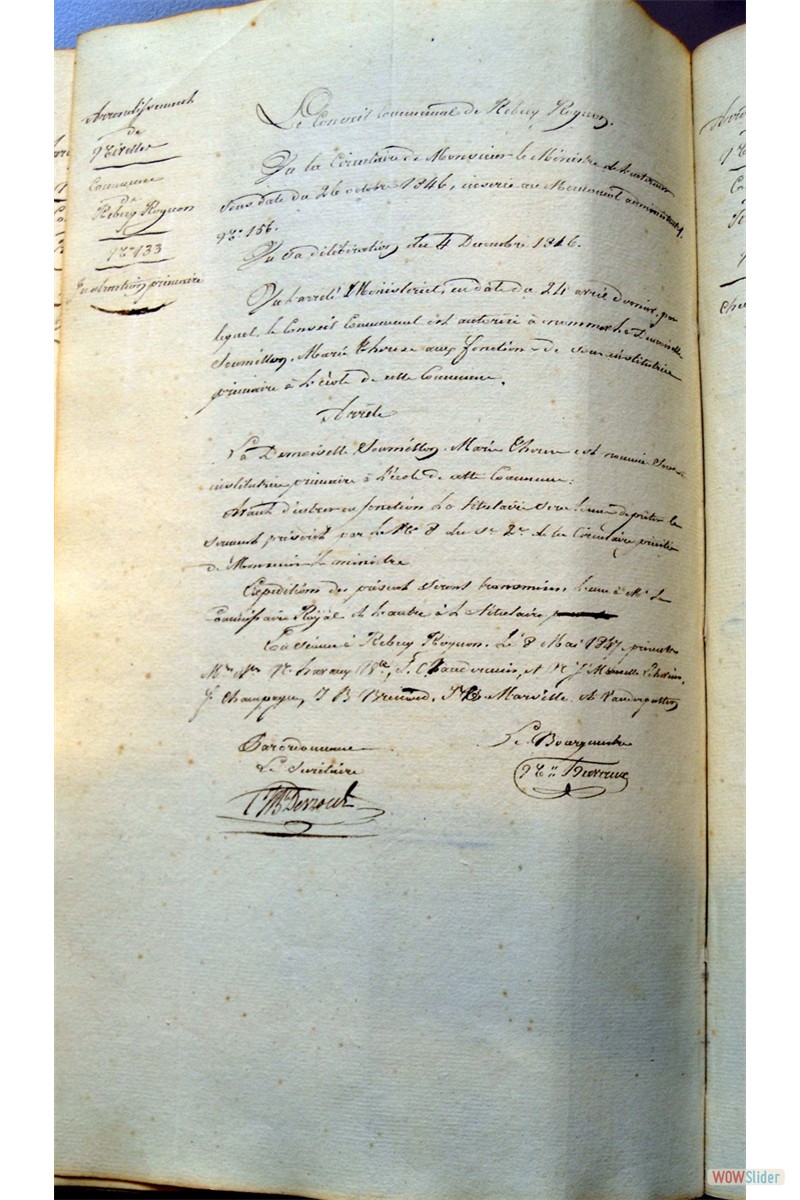 Arrondissement
de
Nivelles
Commune
De
Rebecq Rognon
N° 133
Instruction primaire
Le Conseil Communal de Rebecq Rognon,
Vu la Circulaire de Monsieur le Ministre de l'intérieur
sous date du 26 octobre 1846, insérée au Mémorial administratif,
N° 156.
Vu sa délibération du 4 Décembre 1846.
Vu l'arrêté Ministeriel, en date du 24 avril dernier, par
lequel le Conseil Communal est autorisé à nommer la Demoiselle
Marie Therese aux fonctions de sous institutrice
primaire à l'école de cette Commune.
Arrête
La Demoiselle Marie Therese est nommée Sous
institutrice primaire à l'école de cette Commune.
Avant d'entrer en fonction La titulaire sera tenue de prêter le
serment préscrit par le N° 8 du § 2 de la Circulaire précitée
de Monsieur le ministre
Expéditions du présent seront transmises, l'une à Mr le
Commissaire Royal et l'autre à la titulaire
En séance à Rebecq Rognon. Le 8 Mai 1847, présents
Mrs
J. Champagne, J B Marville et Vanderpatten
Par ordonnance
Le Secrétaire
Le Bourgmestre